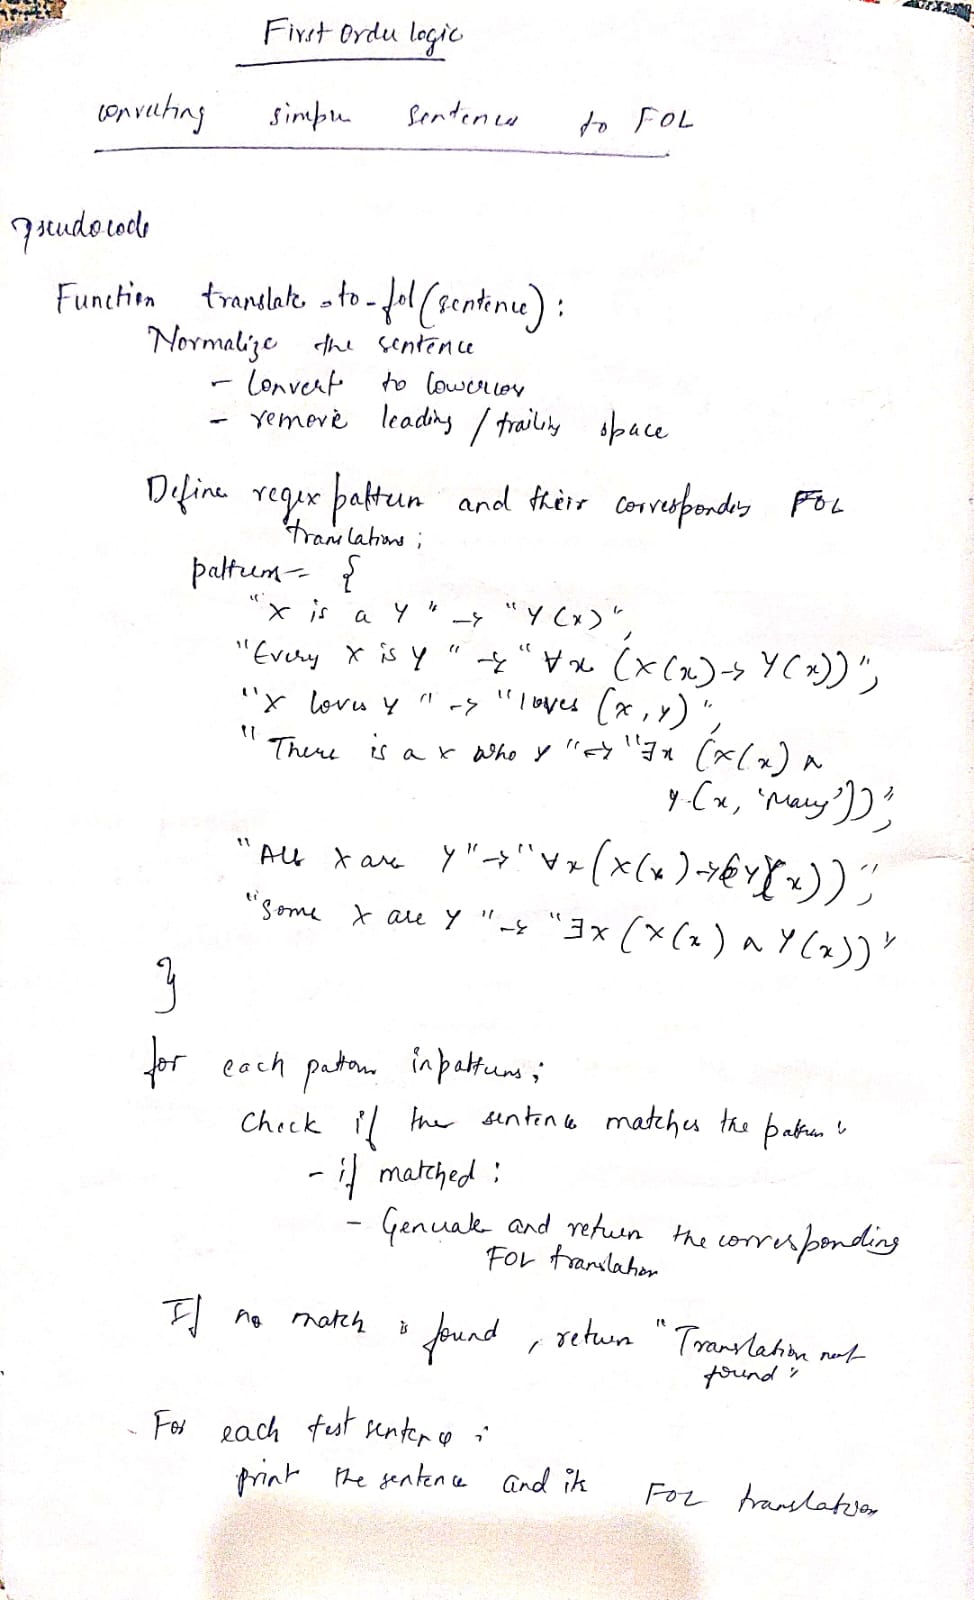 First Order logic
converting simple sentences to FOL
pseudocode
Function translate-to-fol(sentence):
Normalize the sentence
- Convert to lowercase
- remove leading / trailing space
Define regex pattern and their corresponding FOL
translations;
patterns = {
"X is a Y" -> "Y(x)",
"Every X is Y" -> "∀x (X(x) -> Y(x))",
"X loves Y" -> "loves (x,y)",
"There is a x who y" -> "∃x (x(x) ∧
y(x, 'Mary'))",
"All X are Y" -> "∀x (X(x) -> Y(x))",
"Some X are Y" -> "∃x (X(x) ∧ Y(x))"
}
for each pattern in patterns;
Check if the sentence matches the pattern:
- if matched:
- Generate and return the corresponding
FOL translation
If no match is found, return "Translation not
found"
For each test sentence:
print the sentence and its FOL translation